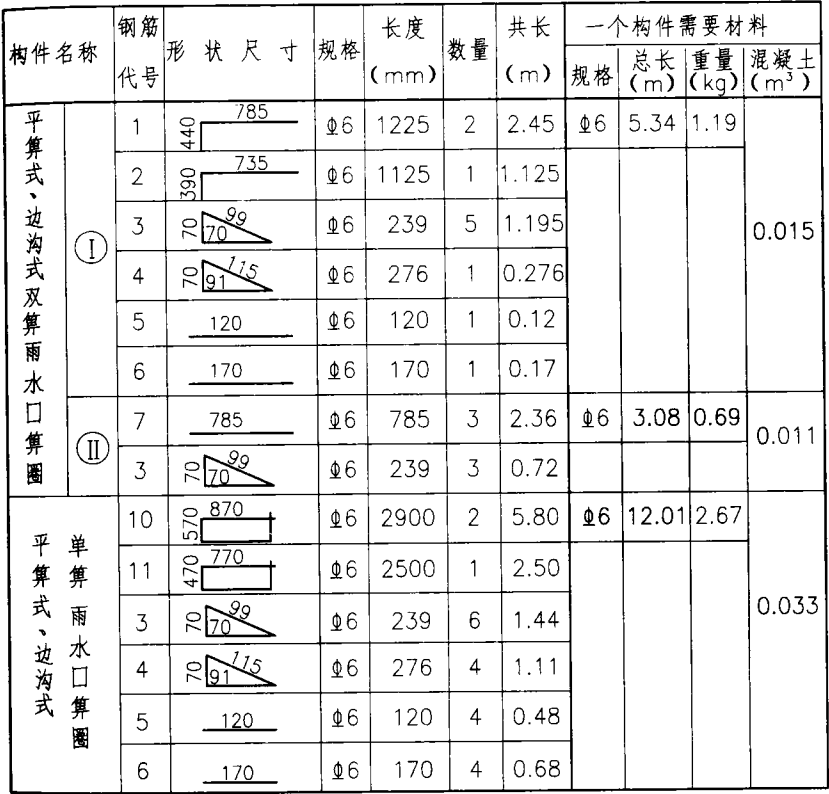 构件名称 钢筋代号 形状尺寸 规格 长度(mm) 数量 共长(m) 一个构件需要材料
规格 总长(m) 重量(kg) 混凝土(m³)
平箅式、边沟式双箅雨水口箅圈
Ⅰ
1 440 785 Φ6 1225 2 2.45 Φ6 5.34 1.19 0.015
2 390 735 Φ6 1125 1 1.125
3 70 70 99 Φ6 239 5 1.195
4 70 91 115 Φ6 276 1 0.276
5 120 Φ6 120 1 0.12
6 170 Φ6 170 1 0.17
Ⅱ
7 785 Φ6 785 3 2.36 Φ6 3.08 0.69 0.011
3 70 70 99 Φ6 239 3 0.72
平箅式、边沟式
单箅雨水口箅圈
10 570 870 Φ6 2900 2 5.80 Φ6 12.01 2.67 0.033
11 470 770 Φ6 2500 1 2.50
3 70 70 99 Φ6 239 6 1.44
4 70 91 115 Φ6 276 4 1.11
5 120 Φ6 120 4 0.48
6 170 Φ6 170 4 0.68